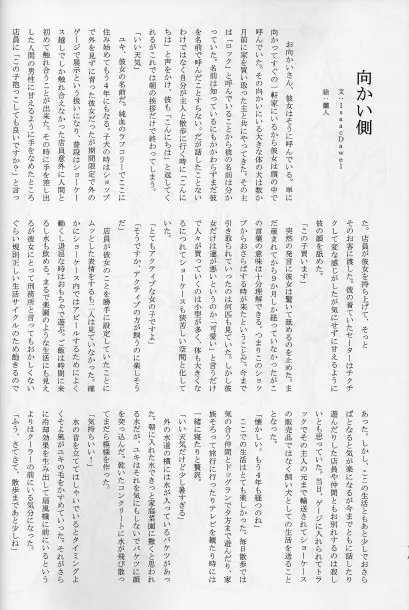 向かい側
文・IsaacDawel
絵・蘭人
お向かいさん、彼女はそうに呼んでいる。単に
向かってすぐの一軒家にいるから彼女は頭の中で
呼んでいた。その向かいにいる大きな体の犬は数か
月前に家を買い取った主と共にやってきた。その主
は「ロック」と呼んでいることから彼の名前は分か
っていた。名前は知っているにもかかわらずまだ彼
を名前で呼んだことすらない。だが話したことない
わけではなく自分が主人と散歩に行く時に「こんに
ちは」と声をかけ、彼も「こんにちは」と返してく
れるがこれでは朝の挨拶だけで終わってしまう。
「いい天気」
ユキ、彼女の名前だ。純血のラフコリーでここに
住み始めてもう4年にもなる。子犬の時はショップ
で外を見ずに育った彼女だったが期間限定で外の
ゲージで展示という扱いになり、普段はショーケー
ス越しでしか触れ合えなかった店員意外に人間と
初めて触れ合うことが出来た。その時に手を差し出
した人間の男性に甘えるように手をなめたところ
店員に「この子抱っこしても良いですか？」と言っ
た。店員が彼女を持ち上げて、そっと
そのお客に渡した。彼の着ていたセーターはチクチ
クして変な感じがしたが気にせずに甘えるように
彼の顔を舐めた。
「この子買います」
突然の発言に彼女は驚いて舐めるのを止めた。ま
だ産まれてから9か月しか経っていなかったがこ
の言葉の意味は十分理解できる。つまりこのショッ
プからおさらばする時が来たということだ。今まで
引き取られていったのは何匹も見ていた。しかし彼
女だけは運が悪いというのか「可愛い」と言うだけ
で人々が買っていくのは小型が多く、体も大きくな
るにつれてショーケースも狭苦しい空間と化して
いた。
「とてもアクティブな女の子ですよ」
「そうですか。アクティブの方が飼うのに楽しそう
だ」
店員が彼女のことを勝手に設定していたことに
ムッとした表情をするも二人は見ていなかった。確
かにショーケース内ではアピールするためによく
動くし退屈な時はおもちゃで遊ぶ。ご飯は時間に来
るし水も飲める。まるで楽園のような生活にも思え
るが彼女にとって刑務所と言ってもおかしくない
ぐらい規則正しい生活サイクルのため飽きるので
あった。しかし、ここの生活ともあと少しでおさら
ばとなると気が楽になるが今までともに話したり
遊んだりした店員や仲間ともお別れするのは悲し
いとも思っていた。当日、ゲージに入れられてトラ
ックでその主人の元まで輸送されてショーケース
の販売品ではなく飼い犬としての生活を送ること
となった。
「懐かしい。もう4年も経つのね」
ここでの生活はとても楽しかった。毎日散歩では
気の合う仲間とドッグランで夕方まで遊んだり、家
族そろって旅行に行ったりテレビを観たり時には
一緒に寝たりと贅沢。
「いい天気だけど少し暑すぎる」
外の水道の横には水が入っているバケツがあっ
た。朝に入れた水できっと家庭菜園に撒くと思われ
る水だが、ユキはそれを気にもしないでバケツに顔
を突っ込んだ。乾いたコンクリートに水が飛び散っ
てまだら模様を作った。
「気持ちいい！」
水の音を立ててはしゃいでいるとタイミングよ
くそよ風がユキの毛をかすめていった。それがさら
に冷却効果を生み出して扇風機に前にいるという
よりはクーラーの前にいる気分になった。
「ふう。さてさて、散歩まであと少しね」